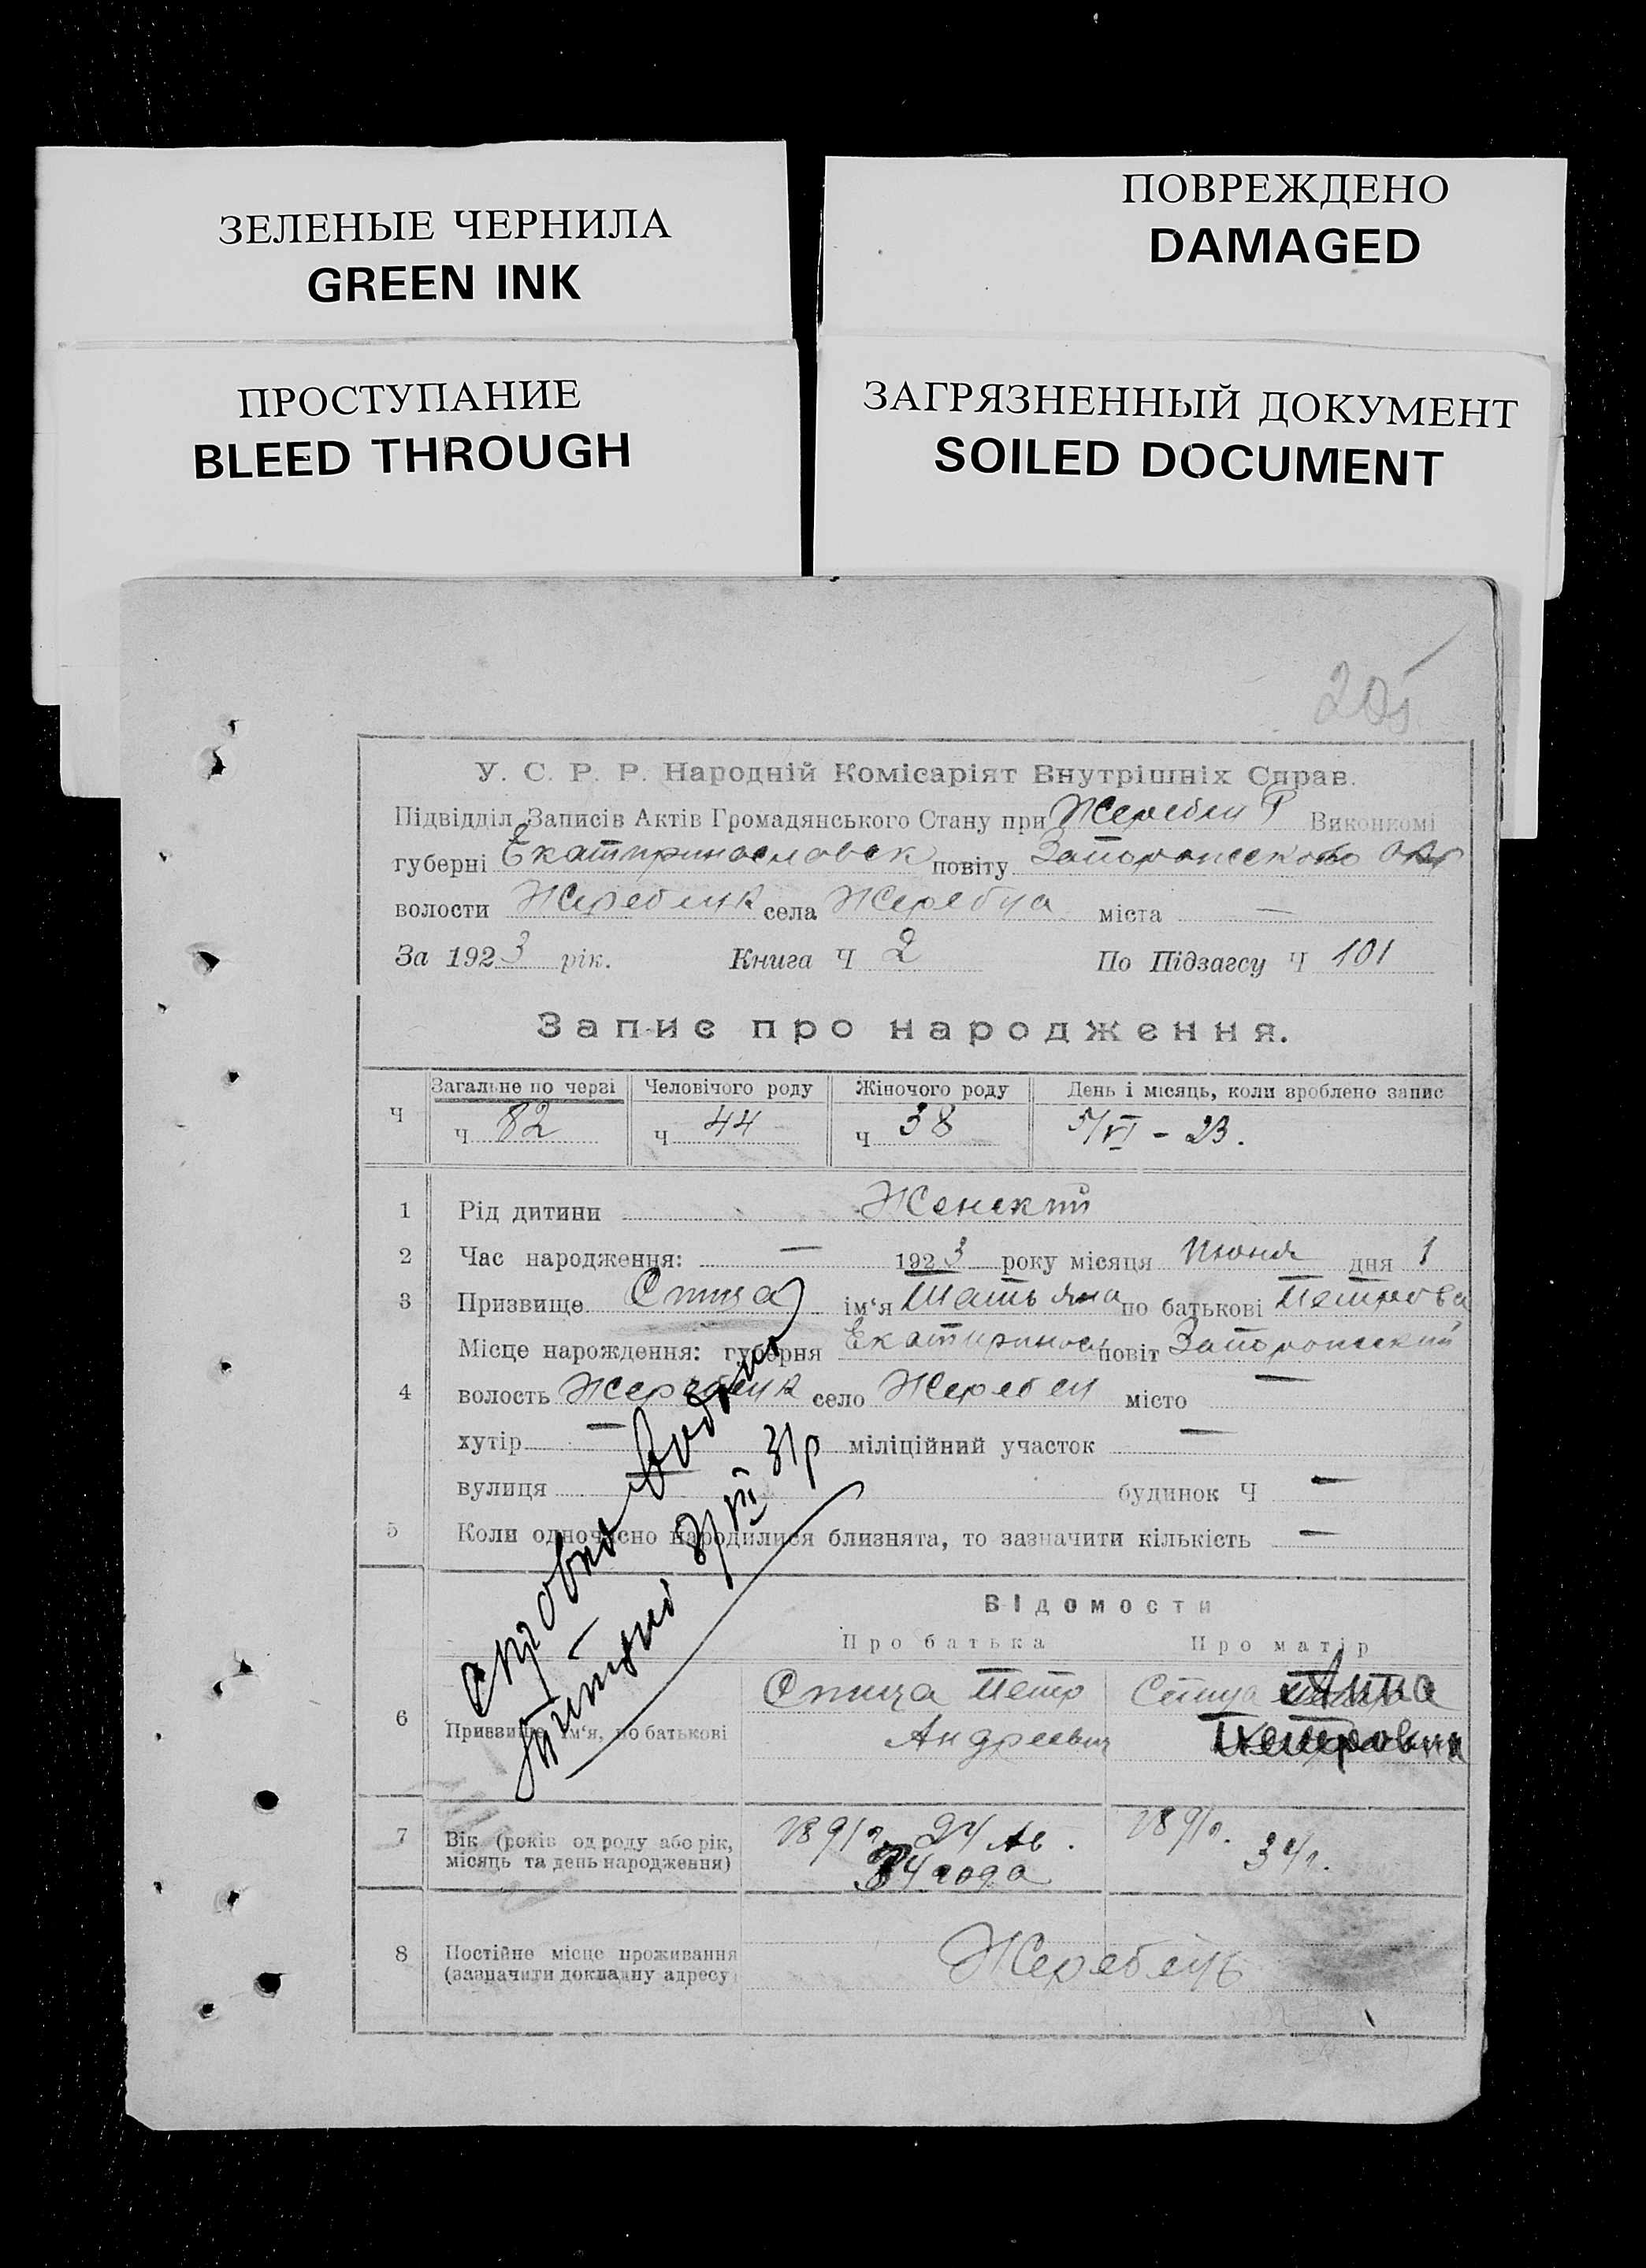 ЗЕЛЕНЫЕ ЧЕРНИЛА
GREEN INK
ПОВРЕЖДЕНО
DAMAGED
ПРОСТУПАНИЕ
BLEED THROUGH
ЗАГРЯЗНЕННЫЙ ДОКУМЕНТ
SOILED DOCUMENT
205
У. С. Р. Р. Народній Комісаріят Внутрішніх Справ.
Підвідділ Записів Актів Громадянського Стану при Виконкомі
губерні Екатиринословск повіту Запорожского окр
волости села Жеребца міста —
За 1923 рік. Книга Ч 2 По Підзагсу Ч 101
Запис про народження.
Ч Загальне по черзі Человічого роду Жіночого роду День і місяць, коли зроблено запис
ч 82 ч 44 ч 38 5/VI - 23.
1 Рід дитини Женский
2 Час народження: — 1923 року місяця Июня дня 1
3 Призвище Спица ім‘я Татьяна по батькові Петрова
Місце нарождення: губерня Екатиринос повіт Запорожский
4 волость село місто —
хутір — міліційний участок —
вулиця — будинок Ч —
5 Коли одночасно народилися близнята, то зазначити кількість —
справка
31р
Відомости
Про батька Про матір
6 Призвище, ім‘я, по батькові Спица Петр Спица Анна
Андреевич Петровна
7 Вік (років од роду або рік, місяць та день народження) 1891г. 1891г. 34г.
34 года
8 Постійне місце проживання (зазначити докладну адресу) Жеребець